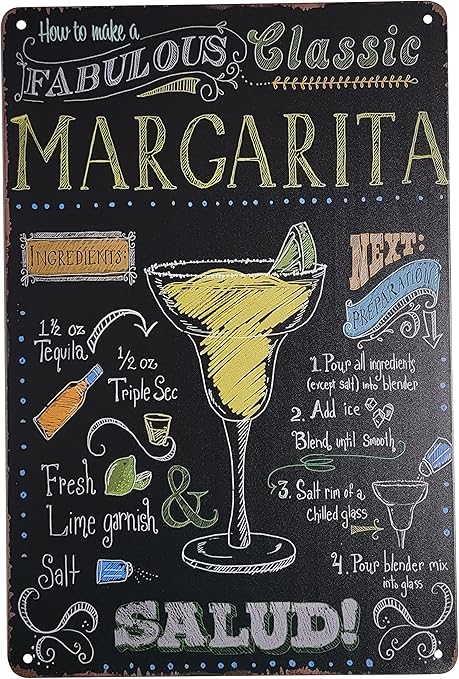 How to make a
FABULOUS Classic
MARGARITA
INGREDIENTS:
1 1/2 oz
Tequila
1/2 oz
Triple Sec
Fresh
Lime garnish
&
Salt
NEXT:
PREPARATION
1. Pour all ingredients
(except salt) into blender
2. Add ice
Blend until smooth
3. Salt rim of a
chilled glass
4. Pour blender mix
into glass
SALUD!